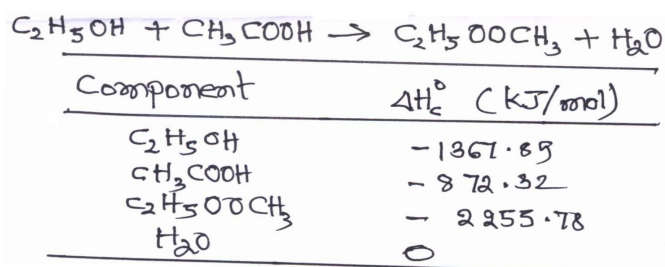 C₂H₅OH + CH₃COOH → C₂H₅OOCH₃ + H₂O
Component ΔH°c (KJ/mol)
C₂H₅OH -1367.89
CH₃COOH - 872.32
C₂H₅OOCH₃ - 2255.78
H₂O 0